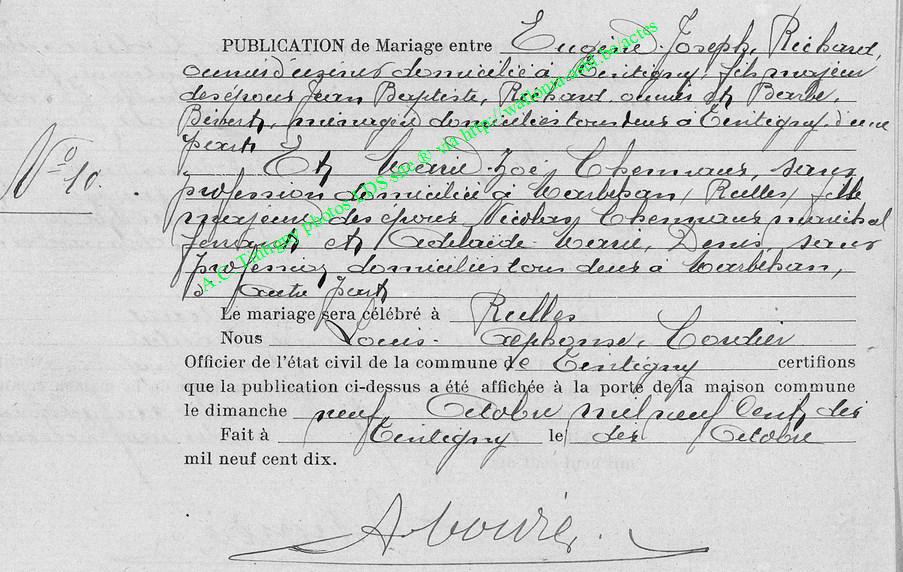 PUBLICATION de Mariage entre Eugène Joseph Richard,
ouvrier d'usines domicilié à Tintigny, fils majeur
des époux Jean Baptiste, Richard ouvrier et Barbe,
ménagère domiciliés tous deux à Tintigny, d'une
part
N° 10.
Et Marie Zoé Thommaux, sans
profession domiciliée à Marbehan, Rulles, fille
majeure des époux Nicolas Thommaux maréchal
ferrant et Adelaïde Marie, Denis, sans
profession domiciliés tous deux à Marbehan,
d'Autre part
Le mariage sera célébré à Rulles
Nous Louis Alphonse,
Officier de l'état civil de la commune de Tintigny certifions
que la publication ci-dessus a été affichée à la porte de la maison commune
le dimanche neuf Octobre mil neuf Cent dix
Fait à Tintigny le dix Octobre
mil neuf cent dix.
A.C. Tintigny photos LDS site ® via http://wallonia-asbl.be/actes